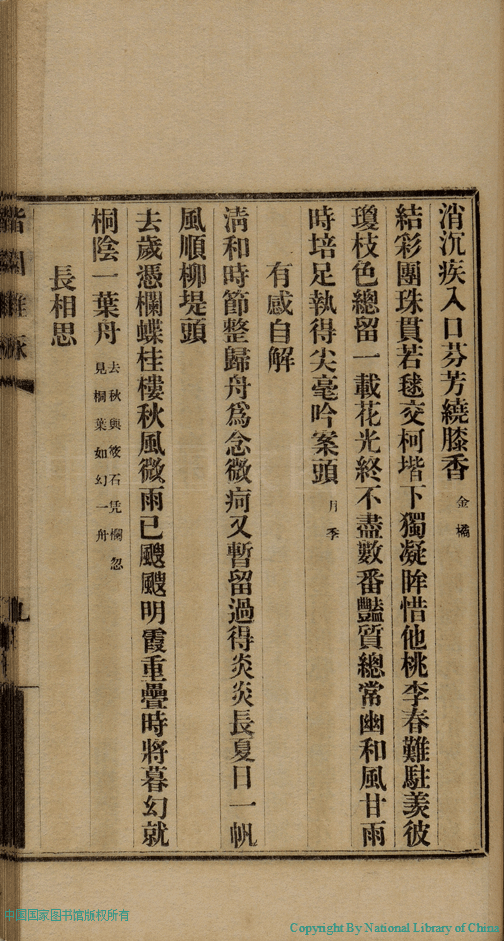 消沉疾入口芬芳繞膝香金橘
結彩團珠貫若毬交柯堦下獨凝眸惜他桃李春難駐羨彼
瓊枝色總留一載花光終不盡數番豔質總常幽和風甘雨
時培足執得尖毫吟案頭月季
有感自解
淸和時節整歸舟爲念微疴又暫留過得炎炎長夏日一帆
風順柳堤頭
去歲憑欄蝶桂樓秋風微雨已颼颼明霞重疊時將暮幻就
桐陰一葉舟去秋與筱石凭欄忽
見桐葉如幻一舟
長相思
九
中国国家图书馆版权所有
Copyright By National Library of China